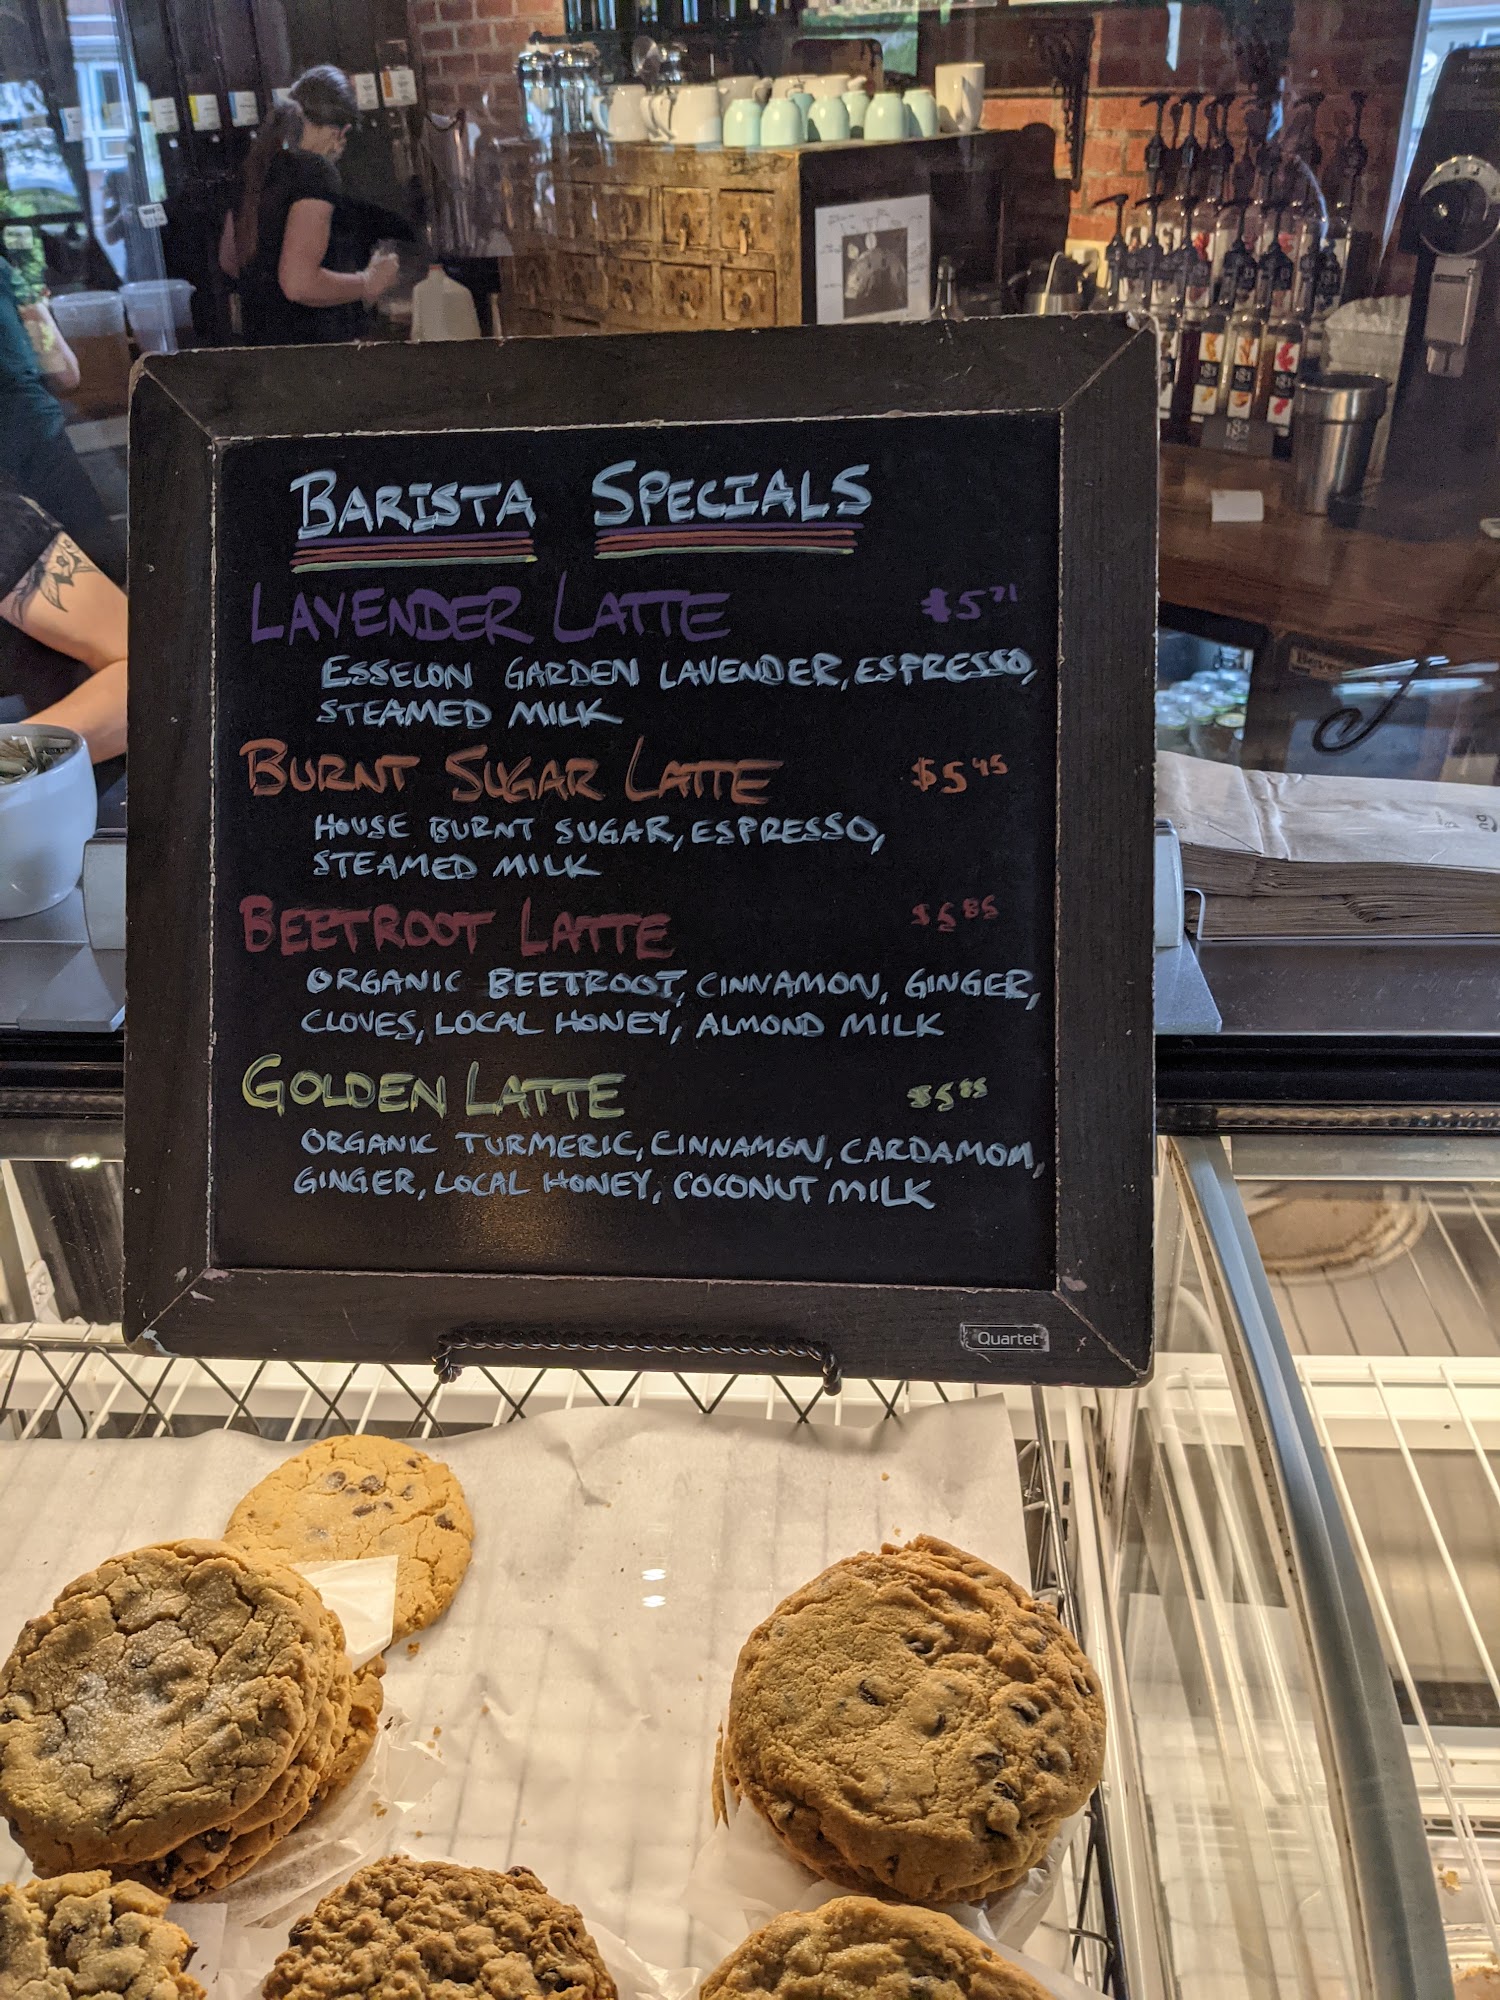 BARISTA SPECIALS
LAVENDER LATTE $5 71
ESSELON GARDEN LAVENDER, ESPRESSO,
STEAMED MILK
BURNT SUGAR LATTE $5 45
HOUSE BURNT SUGAR, ESPRESSO,
STEAMED MILK
BEETROOT LATTE $5 85
ORGANIC BEETROOT, CINNAMON, GINGER,
CLOVES, LOCAL HONEY, ALMOND MILK
GOLDEN LATTE $5 85
ORGANIC TURMERIC, CINNAMON, CARDAMOM,
GINGER, LOCAL HONEY, COCONUT MILK
Quartet